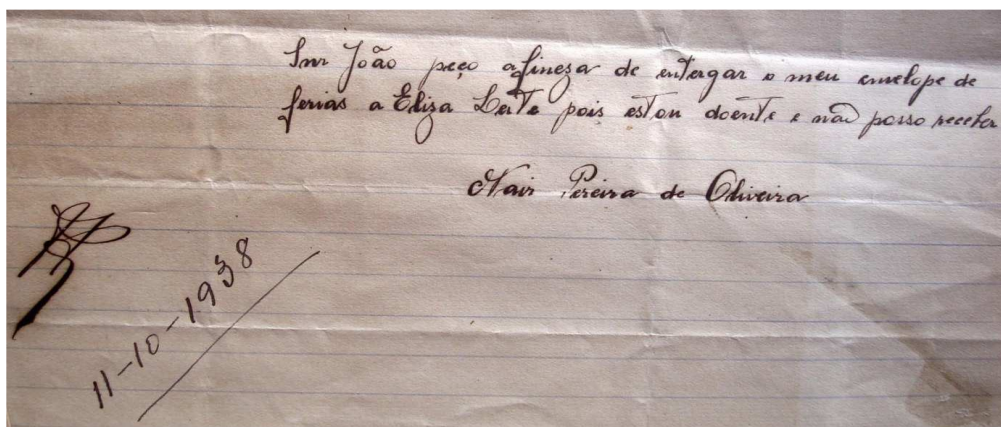 Snr João peço afineza de entregar o meu emvelope de
ferias a Eliza Leite pois estou doente e não posso receber
Nair Pereira de Oliveira
11-10-1938